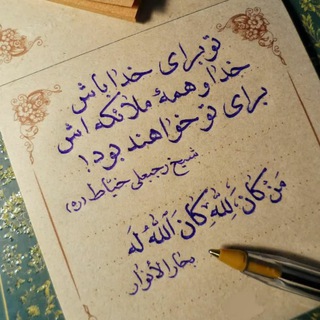 تو برای خدا باش
خدا و همهٔ ملائکه اش
برای تو خواهند بود!
شیخ رجبعلی خیّاط (ره)
مَن کانَ لِلّهِ کانَ اَللّهُ لَه
بحارالأنوار